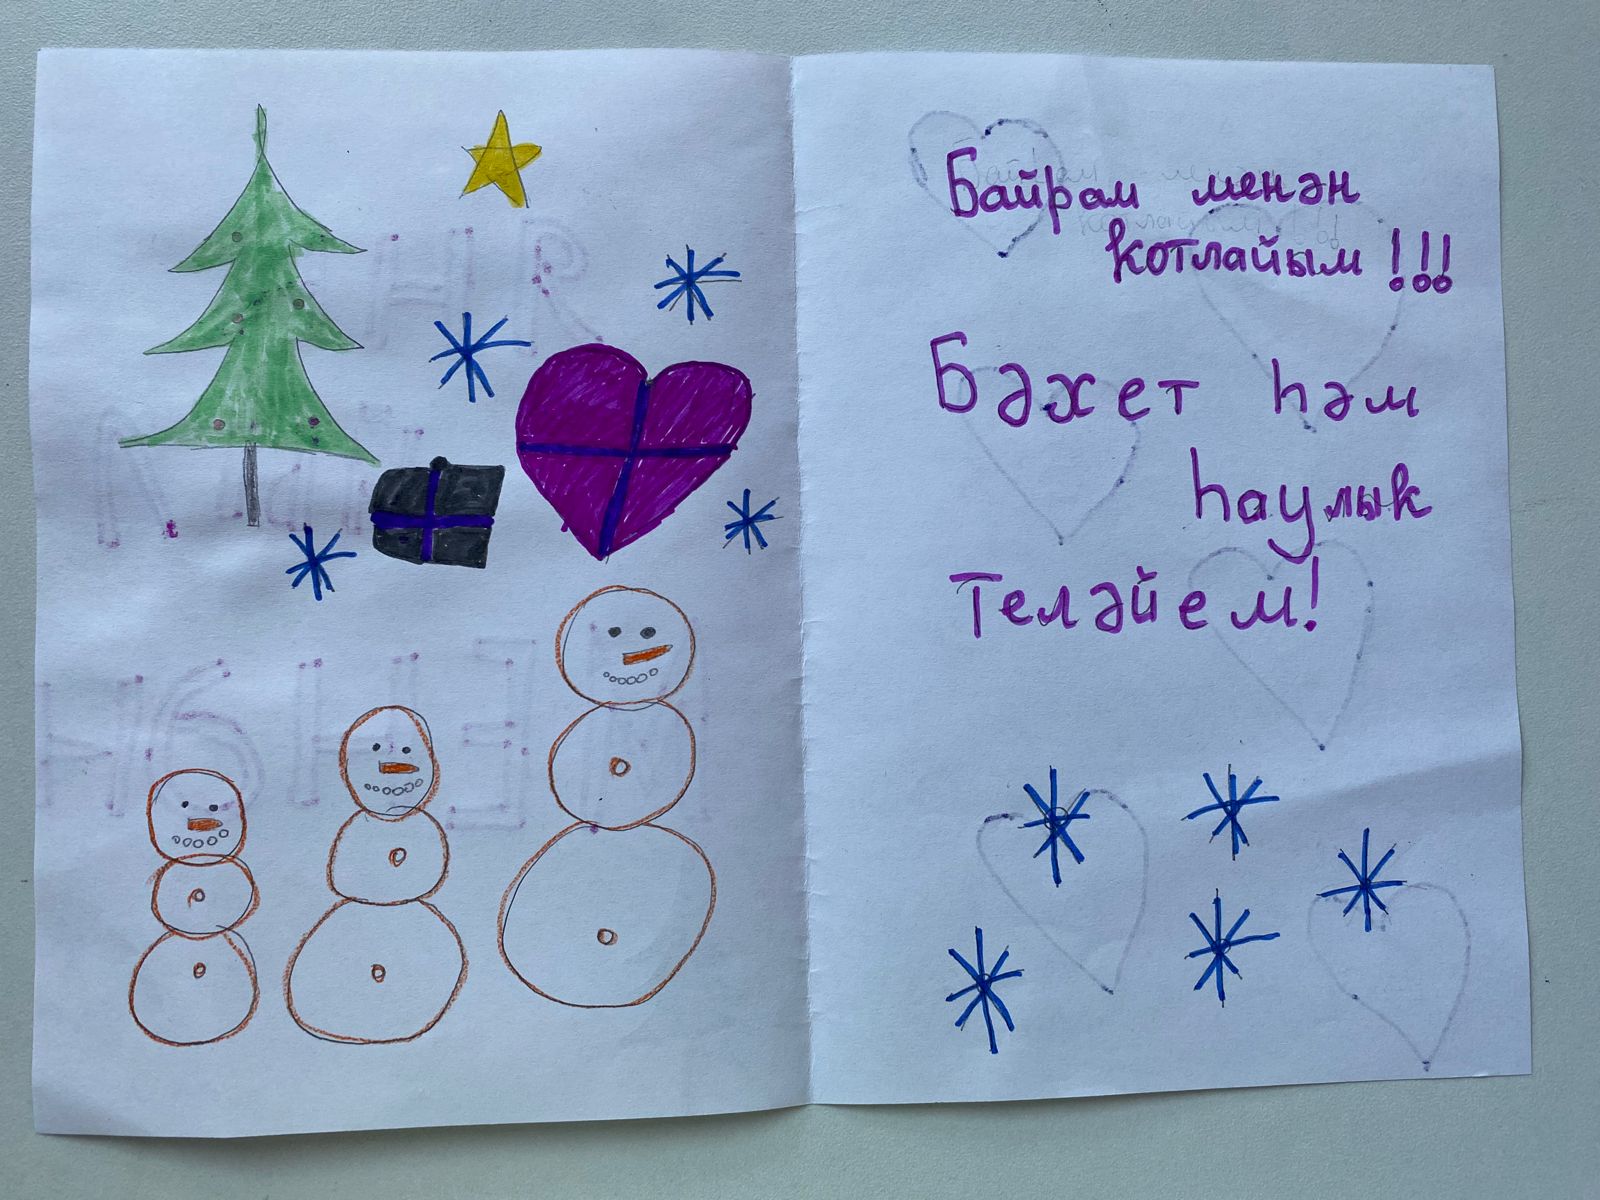 Байрам менән
котлайым!!!
Бәхет һәм
һаулык
Теләйем!